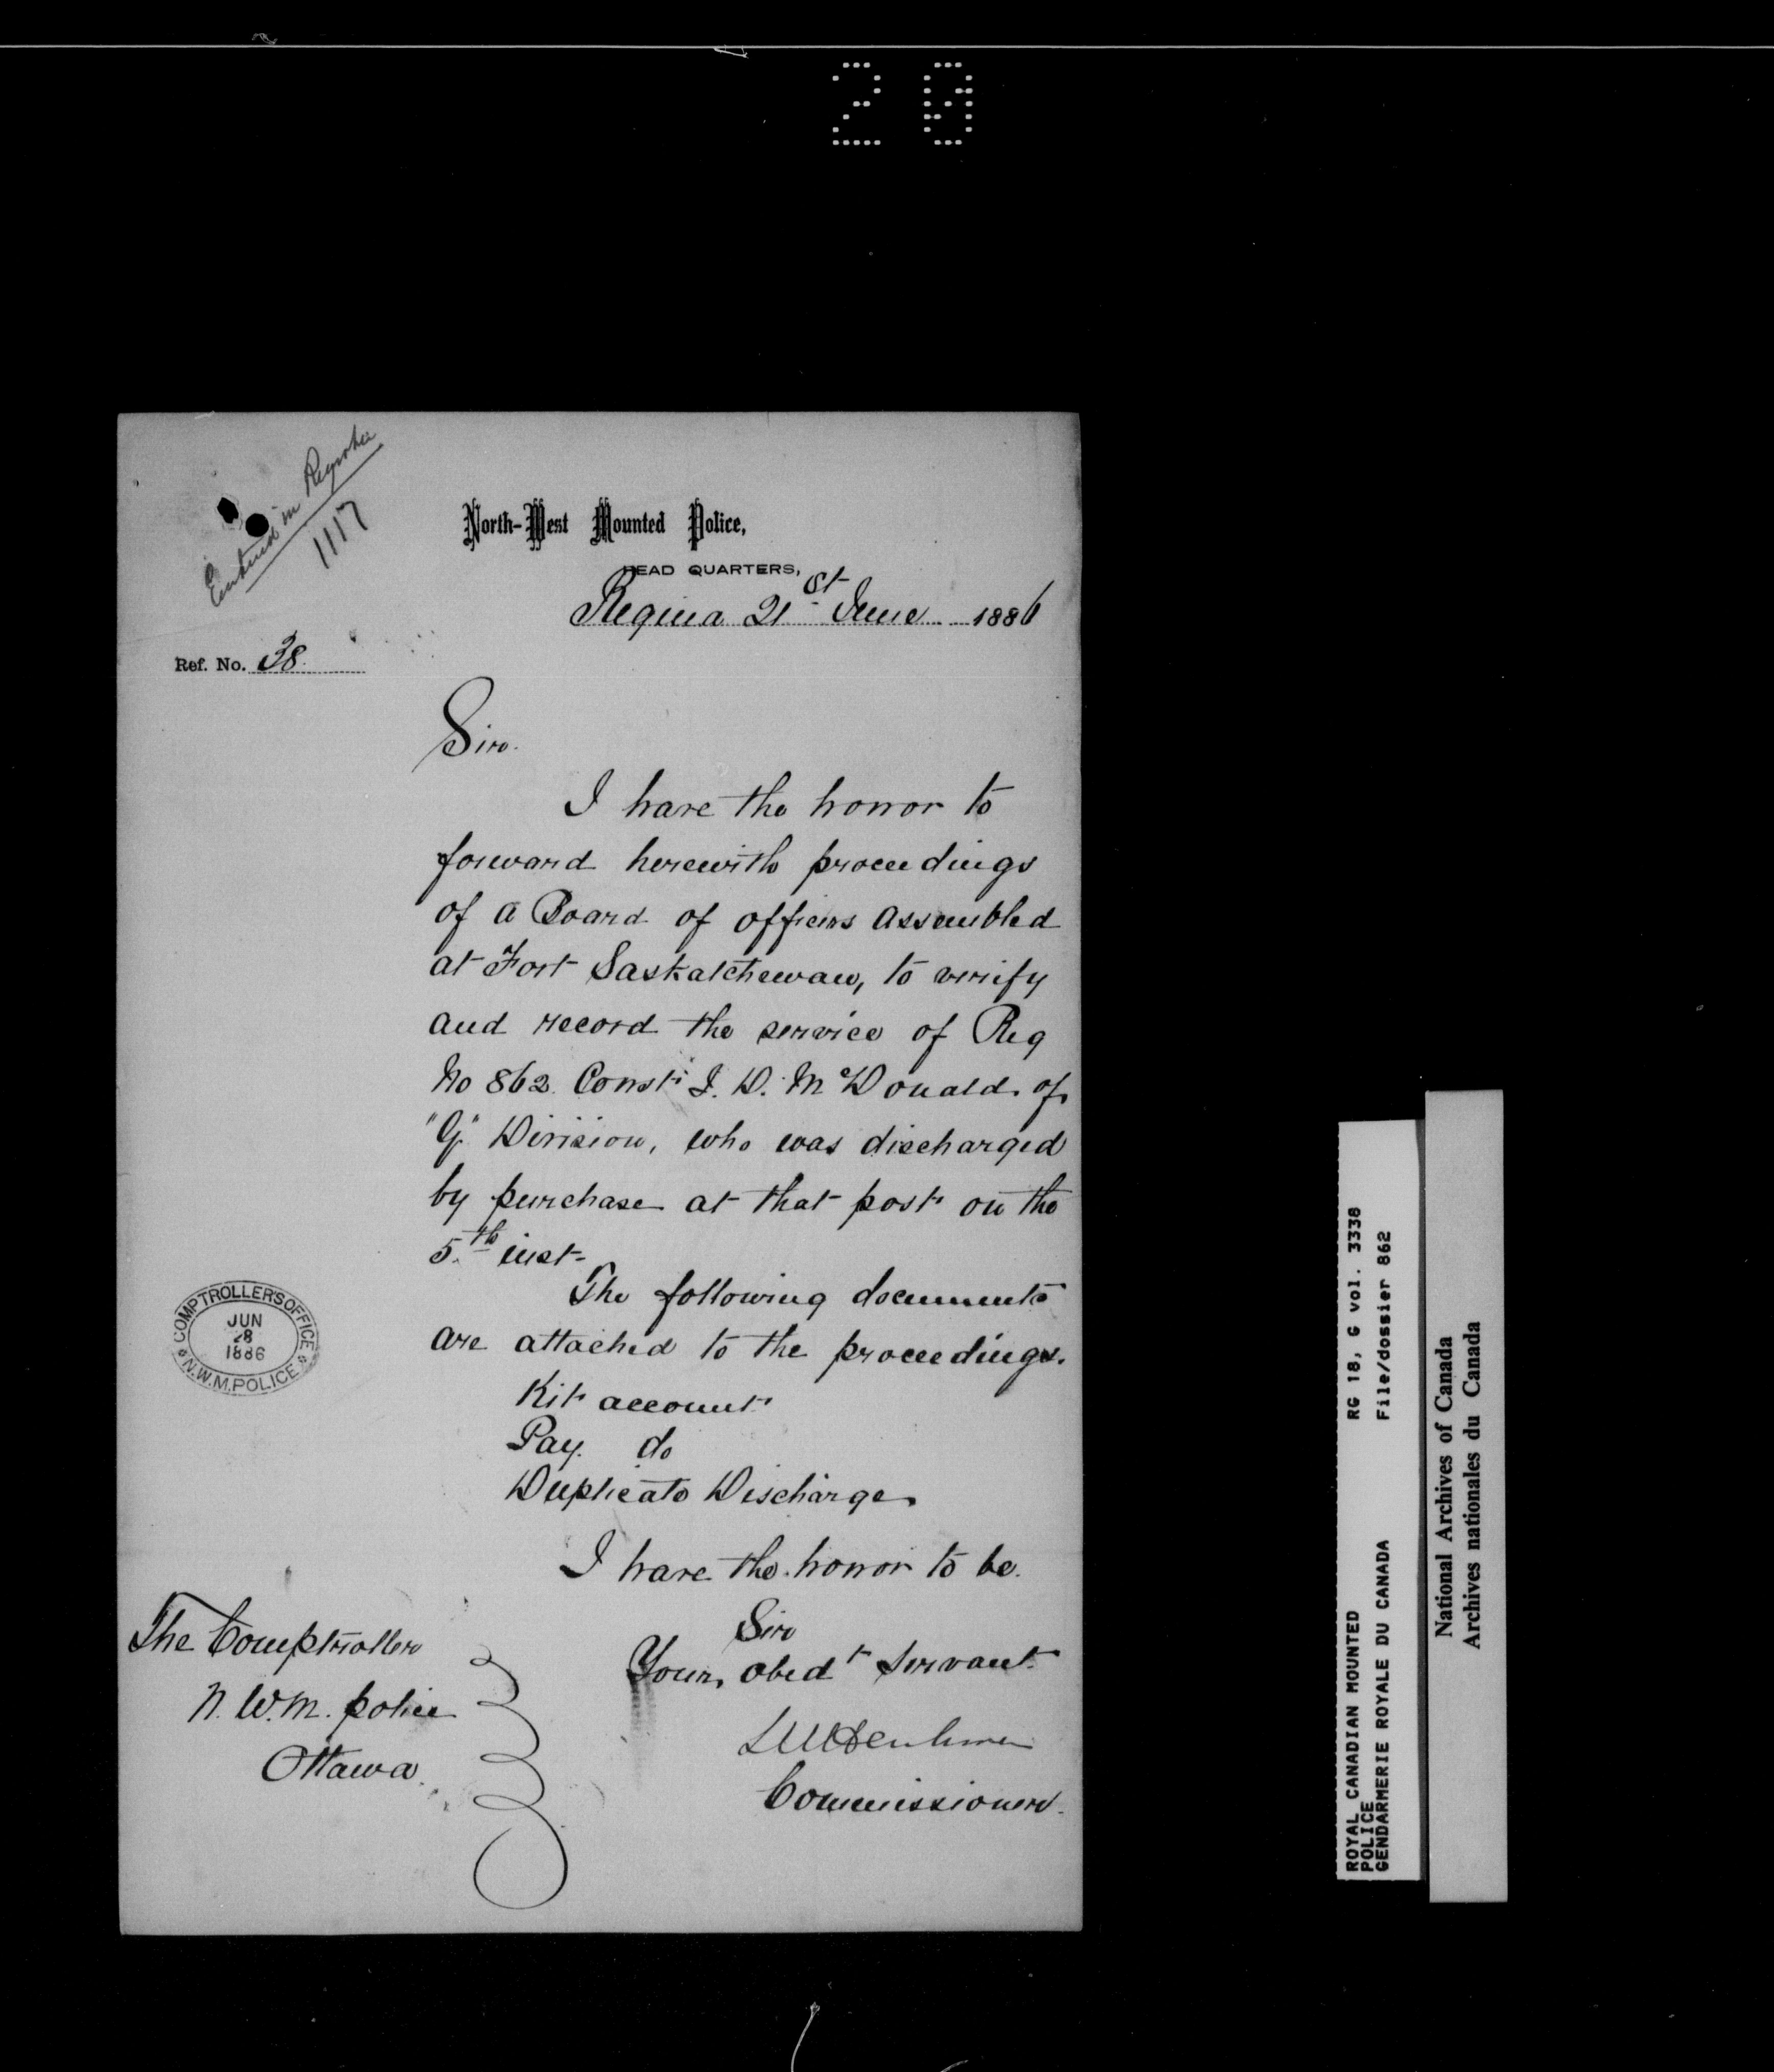 20
Entered in Register
1117
North-West Mounted Police,
HEAD QUARTERS,
Regina 21st June 1886
Ref. No. 38
Sir.
I have the honor to
forward herewith proceedings
of a Board of officers assembled
at Fort Saskatchewan, to verify
and record the service of Reg
No 862 Const: J. D. McDonald of
"G" Division, who was discharged
by purchase at that post on the
5th inst-
The following documents
are attached to the proceedings.
Kit account
Pay. do
Duplicate Discharge
I have the honor to be.
Sir
Your obedt servant
Commissioner.
The Comptroller
N.W.M. police
Ottawa.
COMPTROLLER'S OFFICE
JUN
28
1886
N.W.M. POLICE
ROYAL CANADIAN MOUNTED RG 18, G vol. 3338
POLICE
GENDARMERIE ROYALE DU CANADA File/dossier 862
National Archives of Canada
Archives nationales du Canada